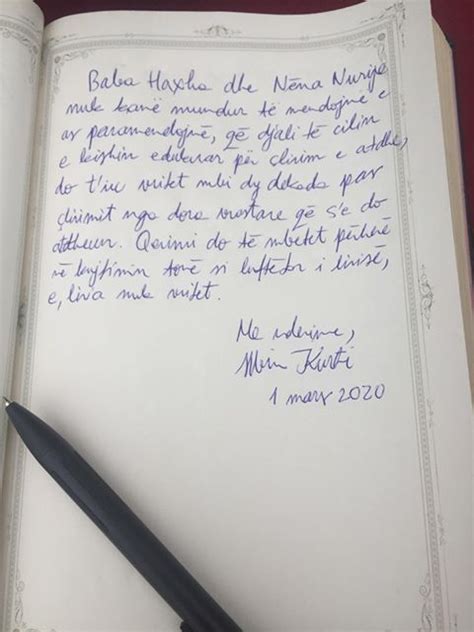 Baba Haxha dhe Nëna Nurije
nuk kanë mundur të mendojnë e
as paramendojnë, që djali të cilin
e kishin edukuar për çlirim e atdhe,
do t'iu vritet mbi dy dekada pas
çlirimit nga dora vrastare që s'e do
atdheun. Qerimi do të mbetet përherë
në kujtimin tonë si luftëtar i lirisë,
e, liria nuk vritet.
Me nderime,
Kurti
1 mars 2020